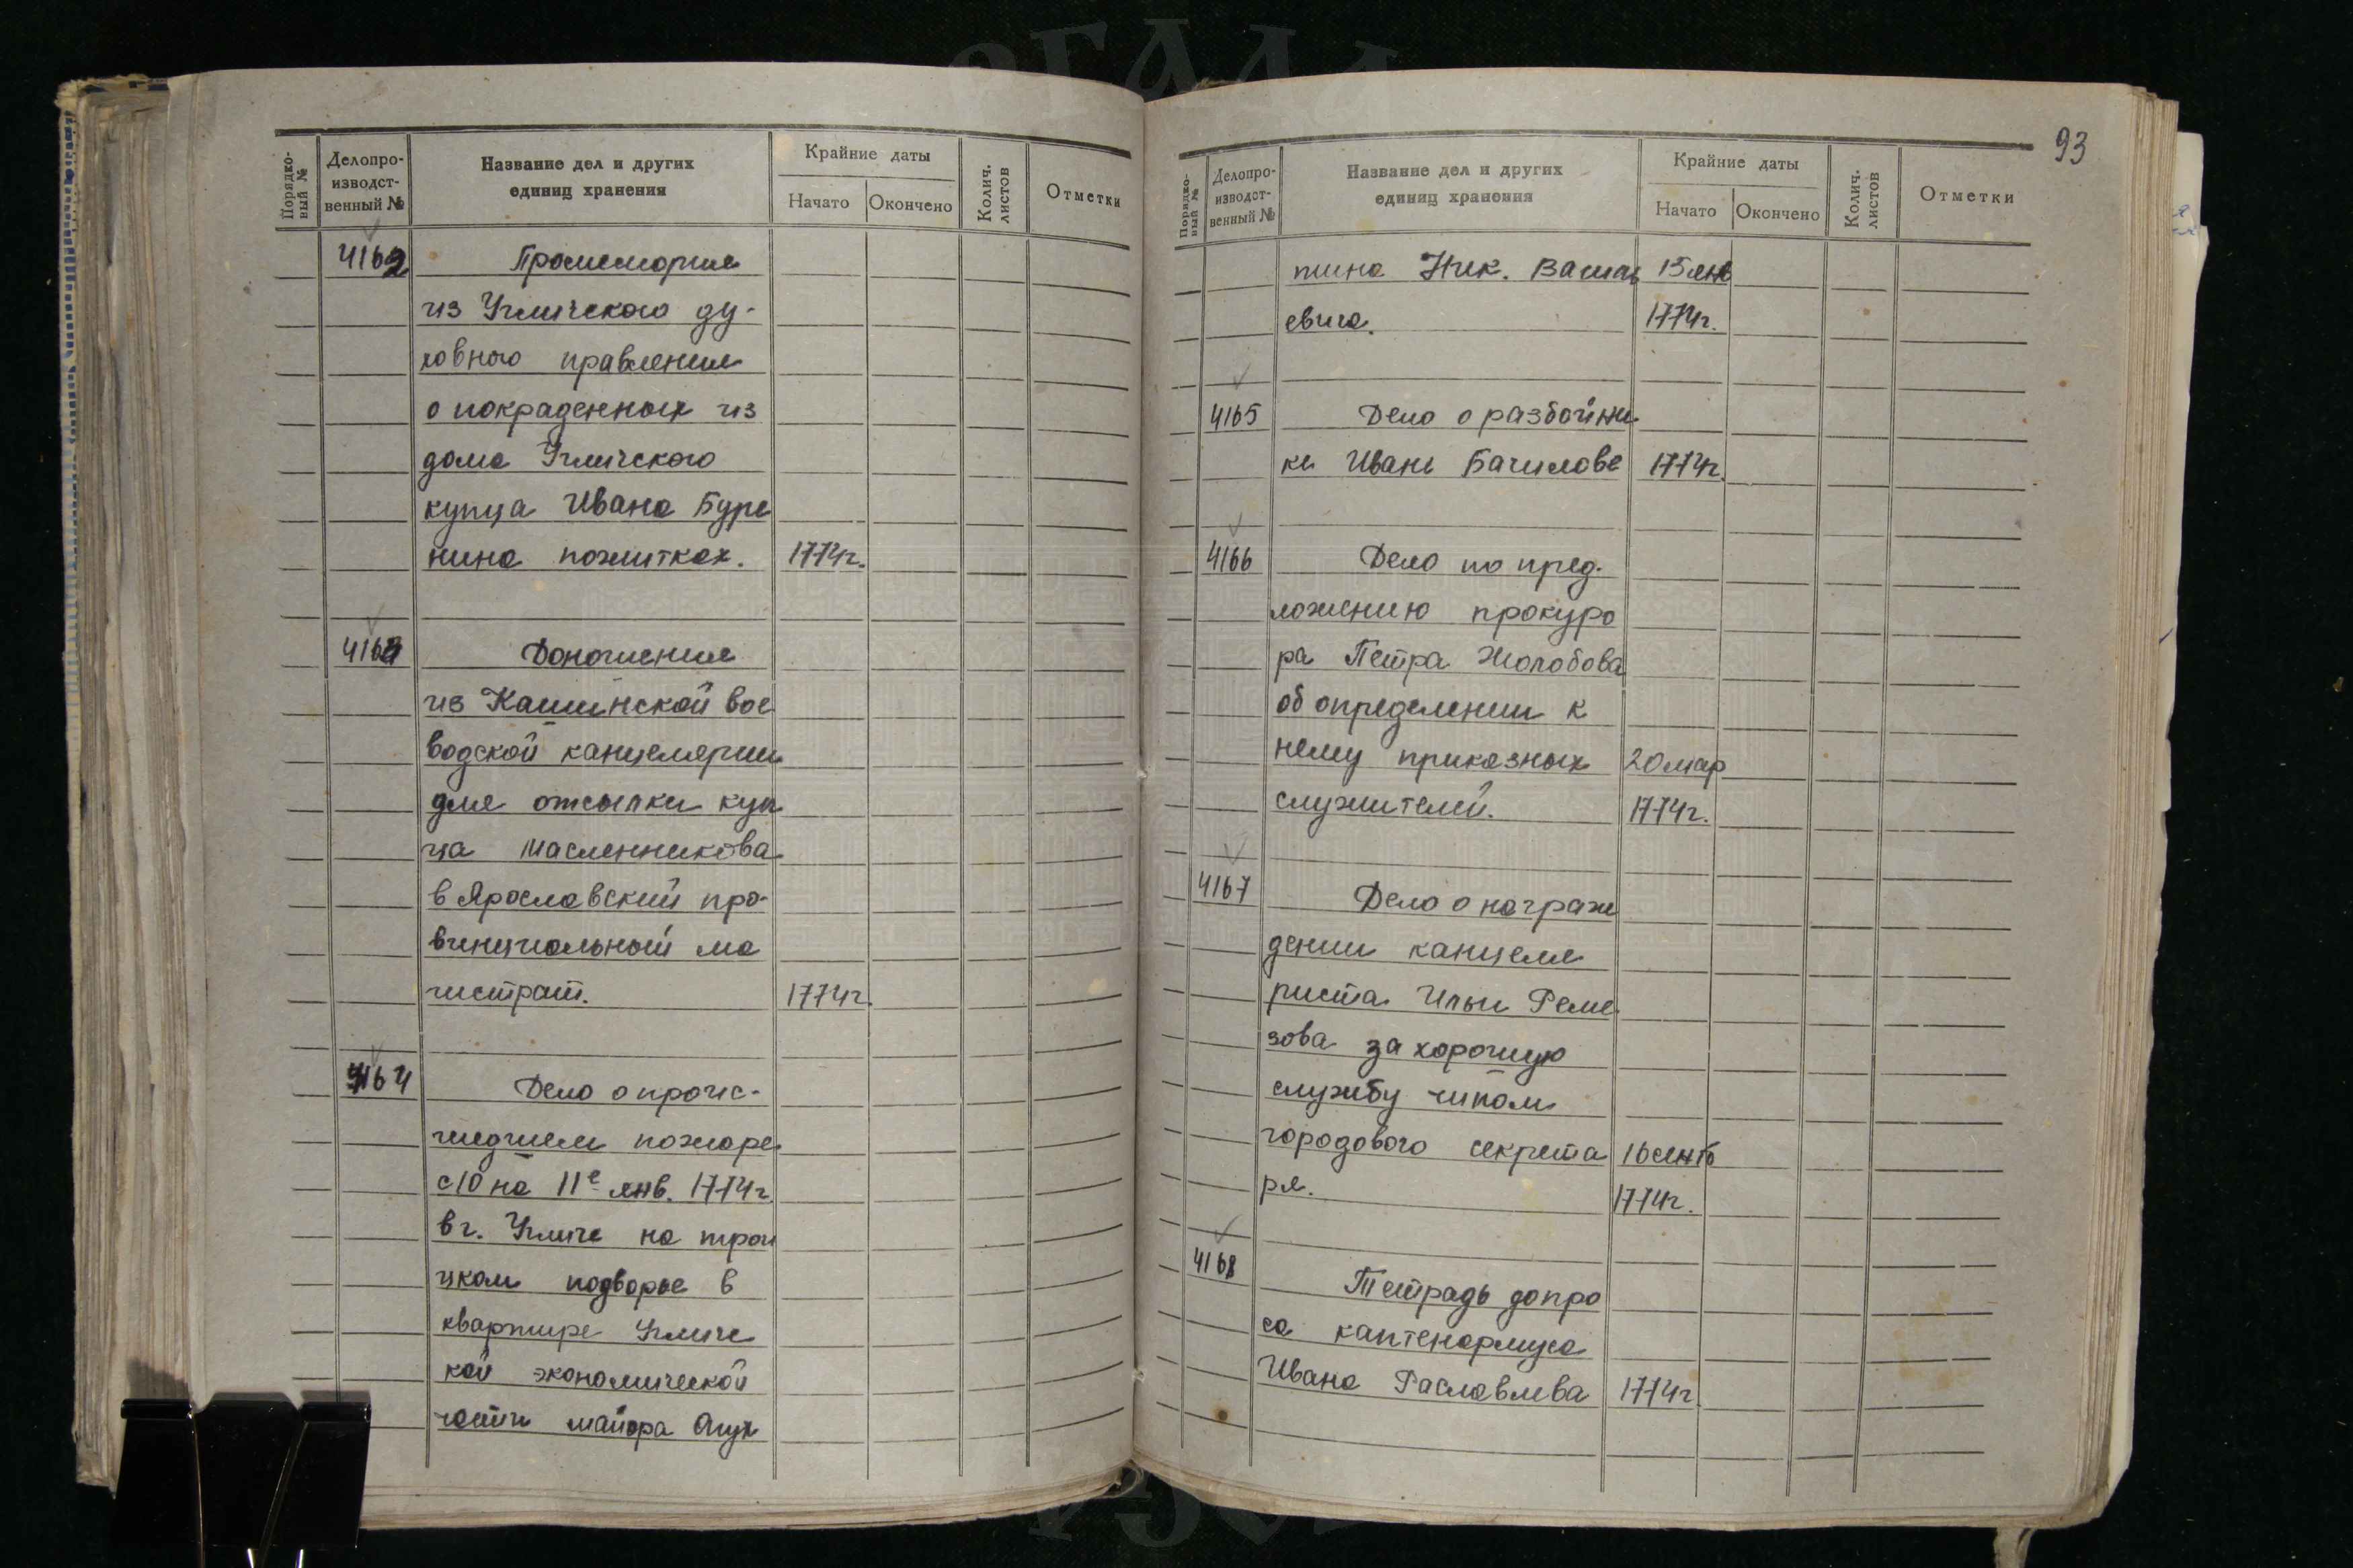 Порядко-
вый №
Делопро-
изводст-
венный №
Название дел и других
единиц хранения
Крайние даты
Начато
Окончено
Колич.
листов
Отметки
4162
Промемория
из Угличского ду-
ховного правления
о покраденных из
дома Угличского
купца Ивана Буре
нина пожитках. 1774г.
4163
Доношение
из Кашинской вое
водской канцелярии
для отсылки куп
ца Масленникова
в Ярославский про-
винциальный ма
гистрат. 1774г.
4164
Дело о проис-
шедшем пожаре
с 10 на 11е янв. 1774г.
в г. Угличе на трои
цком подворье в
квартире Углич
кой экономической
части майора Опух
93
Порядко-
вый №
Делопро-
изводст-
венный №
Название дел и других
единиц хранения
Крайние даты
Начато
Окончено
Колич.
листов
Отметки
тина Ник. Василь 15 янв
евича. 1774г.
4165
Дело о разбойни
ке Иване Бачилове 1774г.
4166
Дело по пред-
ложению прокуро
ра Петра Жолобова
об определении к
нему приказных 20 мар
служителей. 1774г.
4167
Дело о награж
дении канцеля
риста Ильи Реме
зова за хорошую
службу чином
городового секрета 16 сентб
ря. 1774г.
4168
Тетрадь допро
са каптенармуса
Ивана Раславлева 1774г